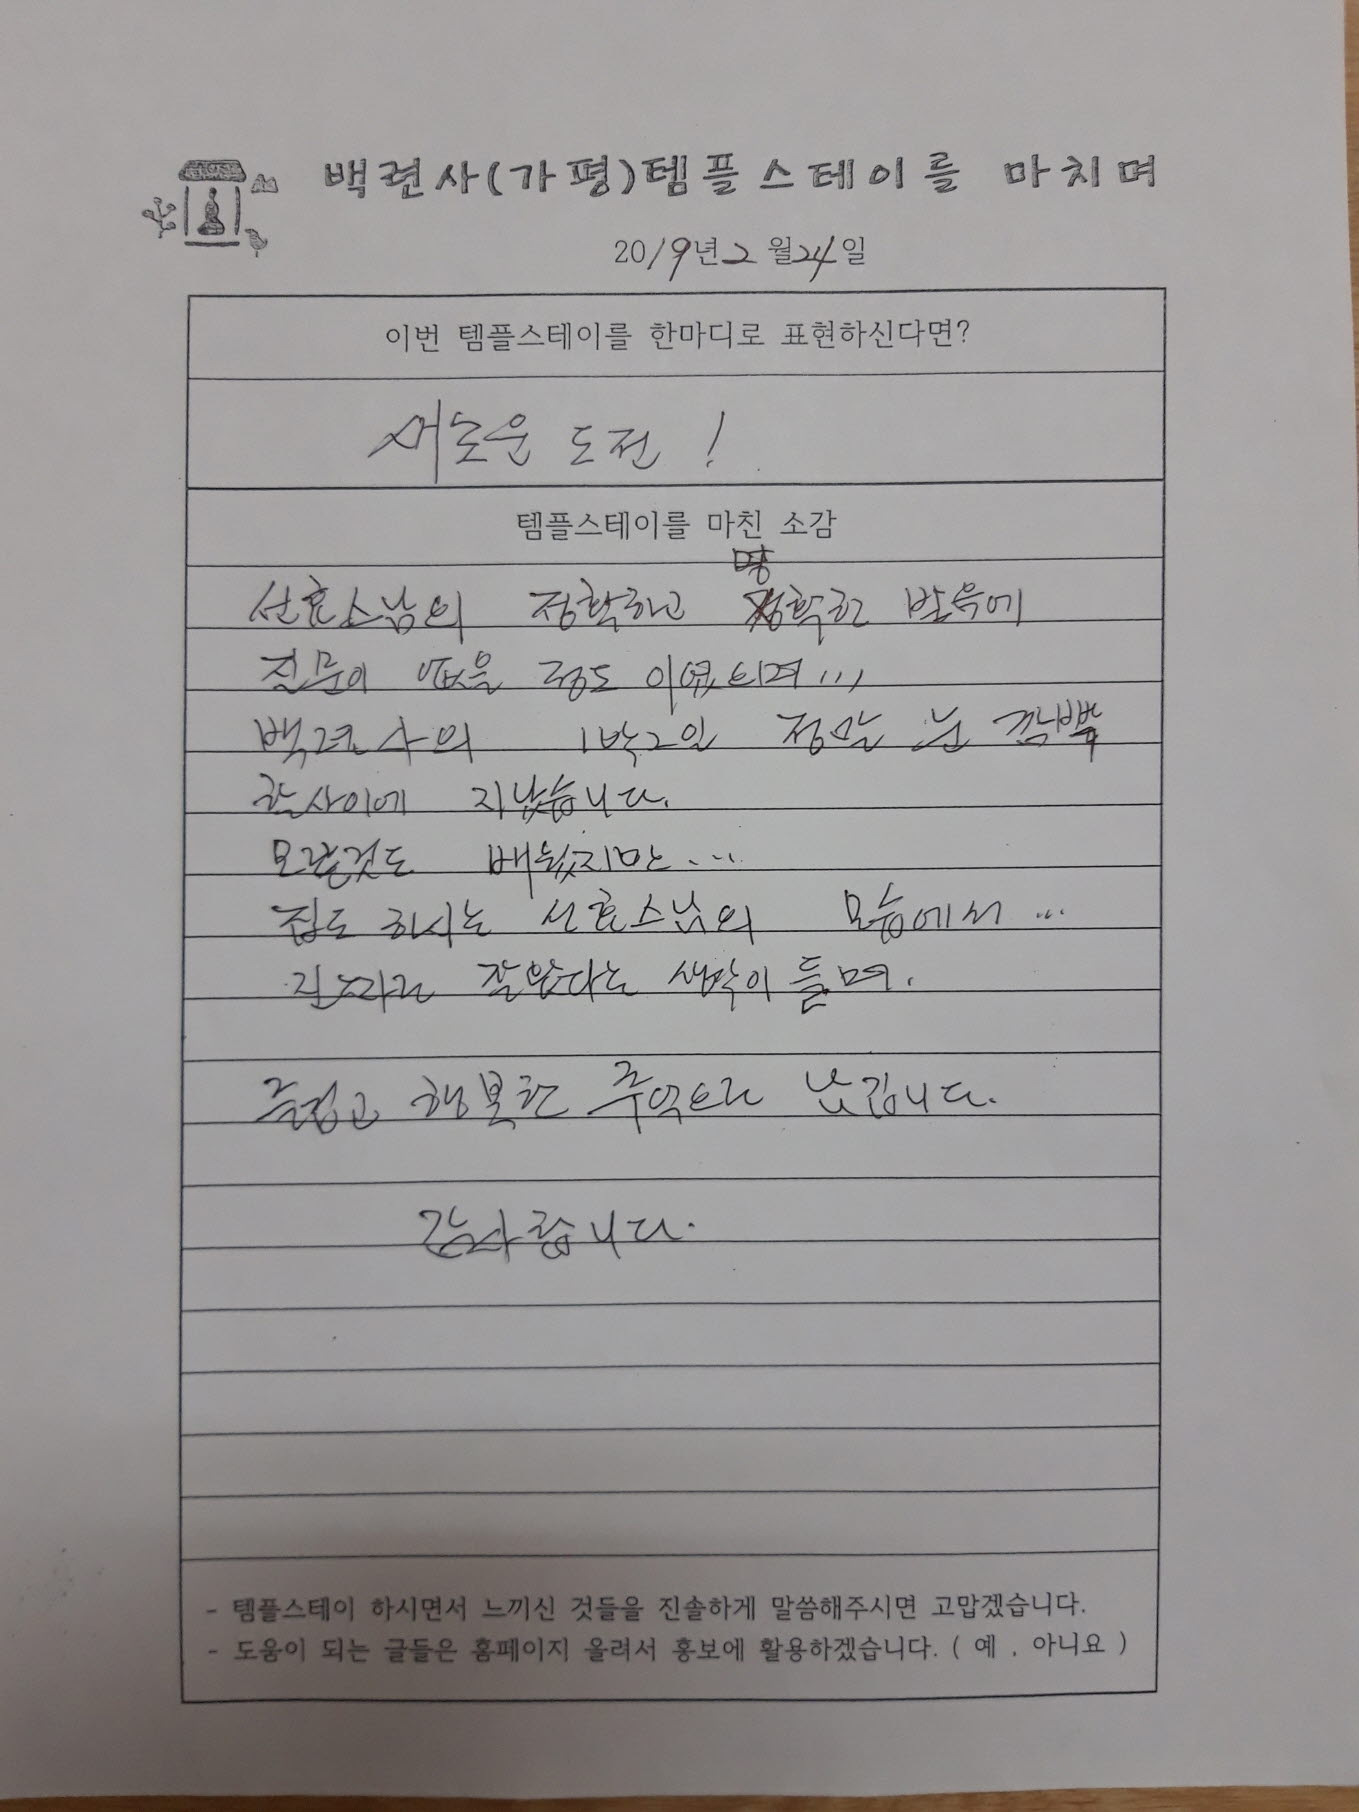 백련사(가평)템플스테이를 마치며
2019년 2월 24일
이번 템플스테이를 한마디로 표현하신다면?
새로운 도전 !
템플스테이를 마친 소감
선효스님의 정확하고 명확한 말씀에
질문이 없을 정도 이였으며...
백련사의 1박2일 정말 눈 깜빡
할사이에 지났습니다.
모든것도 배웠지만...
집도 하시는 선효스님의 모습에서 ...
잘왔다는 생각이 들며.
즐겁고 행복한 추억으로 남깁니다.
감사합니다.
- 템플스테이 하시면서 느끼신 것들을 진솔하게 말씀해주시면 고맙겠습니다.
- 도움이 되는 글들은 홈페이지 올려서 홍보에 활용하겠습니다. ( 예 , 아니요 )